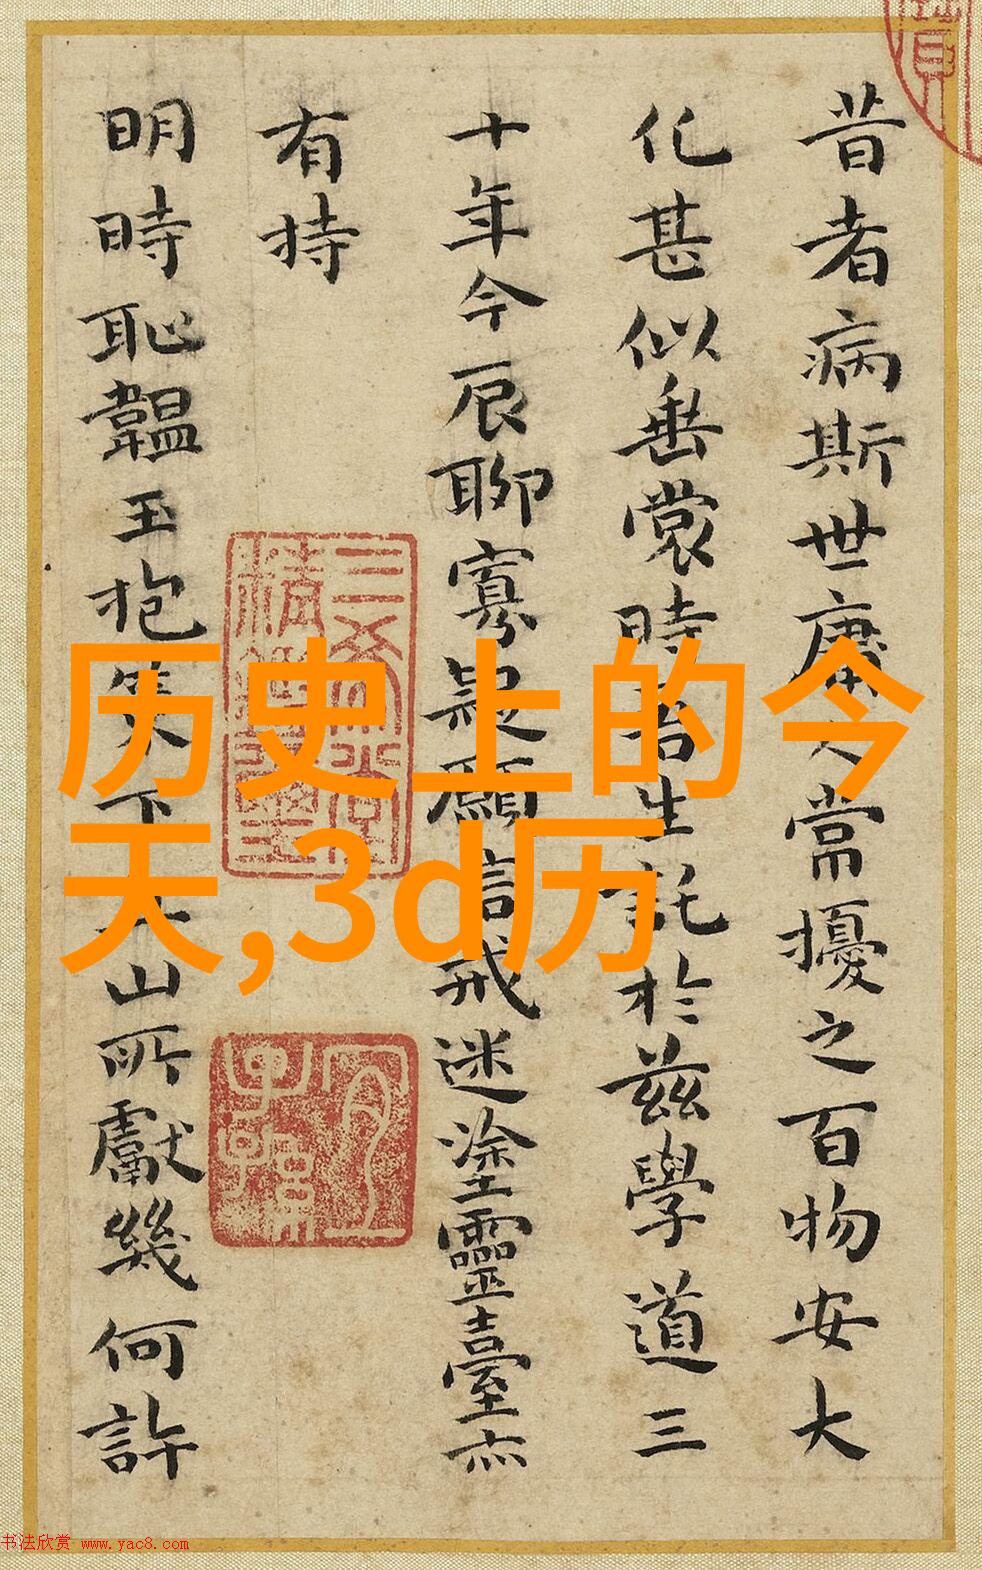 昔者病斯世庸人常擾之百物安大
化甚似垂裳時若生託於茲學道三
十年今辰聊寡疑願言戒迷塗靈臺亦
有持
明時恥韞玉抱策下山所獻幾何許
历史上的今
天,3d历
书法欣赏 www.yac8.com